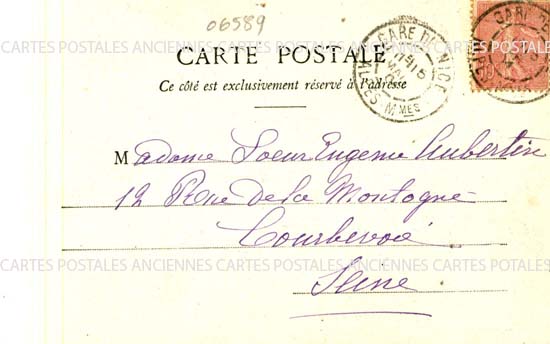 06589
GARE DE NICE
ALPES-MMES
CARTE POSTALE
Ce côté est exclusivement réservé à l'adresse
Madame Soeur Eugenie Aubertin
12 Rue de la Montagne
CARTES POSTALES ANCIENNES CARTES POSTALES ANCIENNES CARTES POTALES
Courbevoie
CARTES POSTALES ANCIENNES CARTES POSTALES ANCIENNES CARTES POTALES
Seine